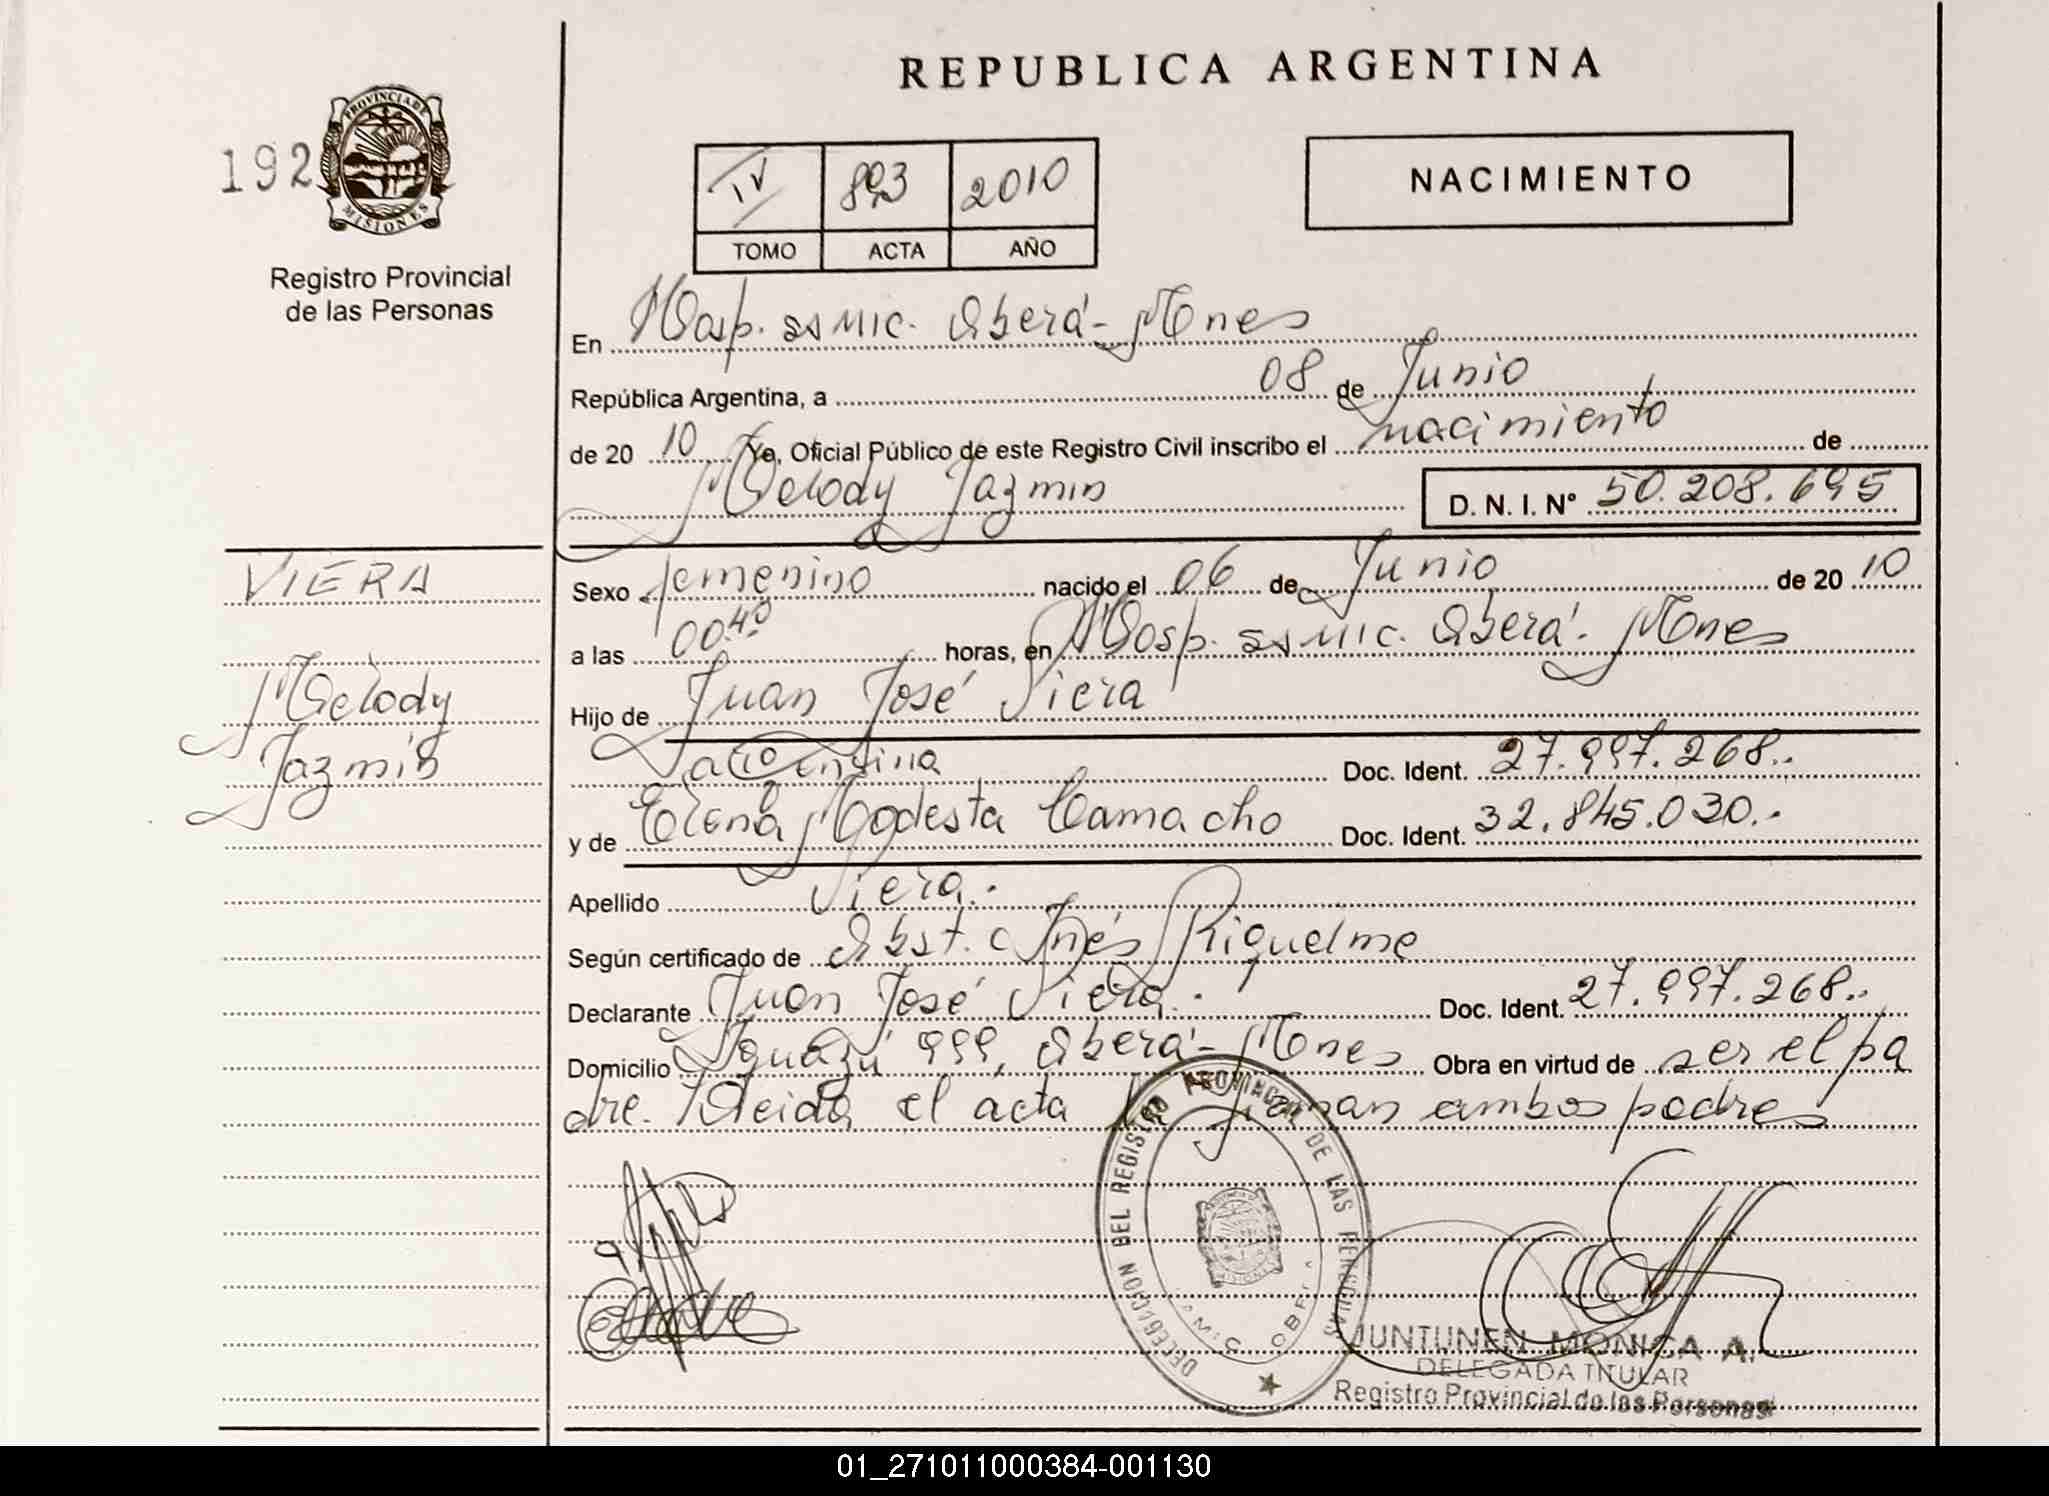 REPUBLICA ARGENTINA
192
PROVINCIA DE
MISIONES
Registro Provincial
de las Personas
IV 893 2010
TOMO ACTA AÑO
NACIMIENTO
En Hosp. SAMIC. Oberá - Mnes
República Argentina, a 08 de Junio
de 20 10 Yo, Oficial Público de este Registro Civil inscribo el nacimiento de
Melody Jazmin D. N. I. Nº 50.208.695
VIERA
Melody
Jazmin
Sexo femenino nacido el 06 de Junio de 20 10
a las 00:40 horas, en Hosp. SAMIC. Oberá - Mnes
Hijo de Juan José Viera
argentina Doc. Ident. 27.997.268..
y de Elena Modesta Camacho Doc. Ident. 32.845.030..
Apellido Viera.
Según certificado de Obst. Inés Riquelme
Declarante Juan José Viera. Doc. Ident. 27.997.268..
Domicilio Iguazú 999, Oberá - Mnes Obra en virtud de ser el pa
dre. Leida el acta la firman ambos padres
DELEGACION DEL REGISTRO PROVINCIAL DE LAS PERSONAS
MISIONES
SAMIC OBERA
JUNTUNEN MONICA A.
DELEGADA TITULAR
Registro Provincial de las Personas
01_271011000384-001130